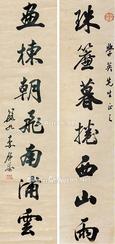 珠簾暮捲西山雨
學英先生正之
畫棟朝飛南浦雲